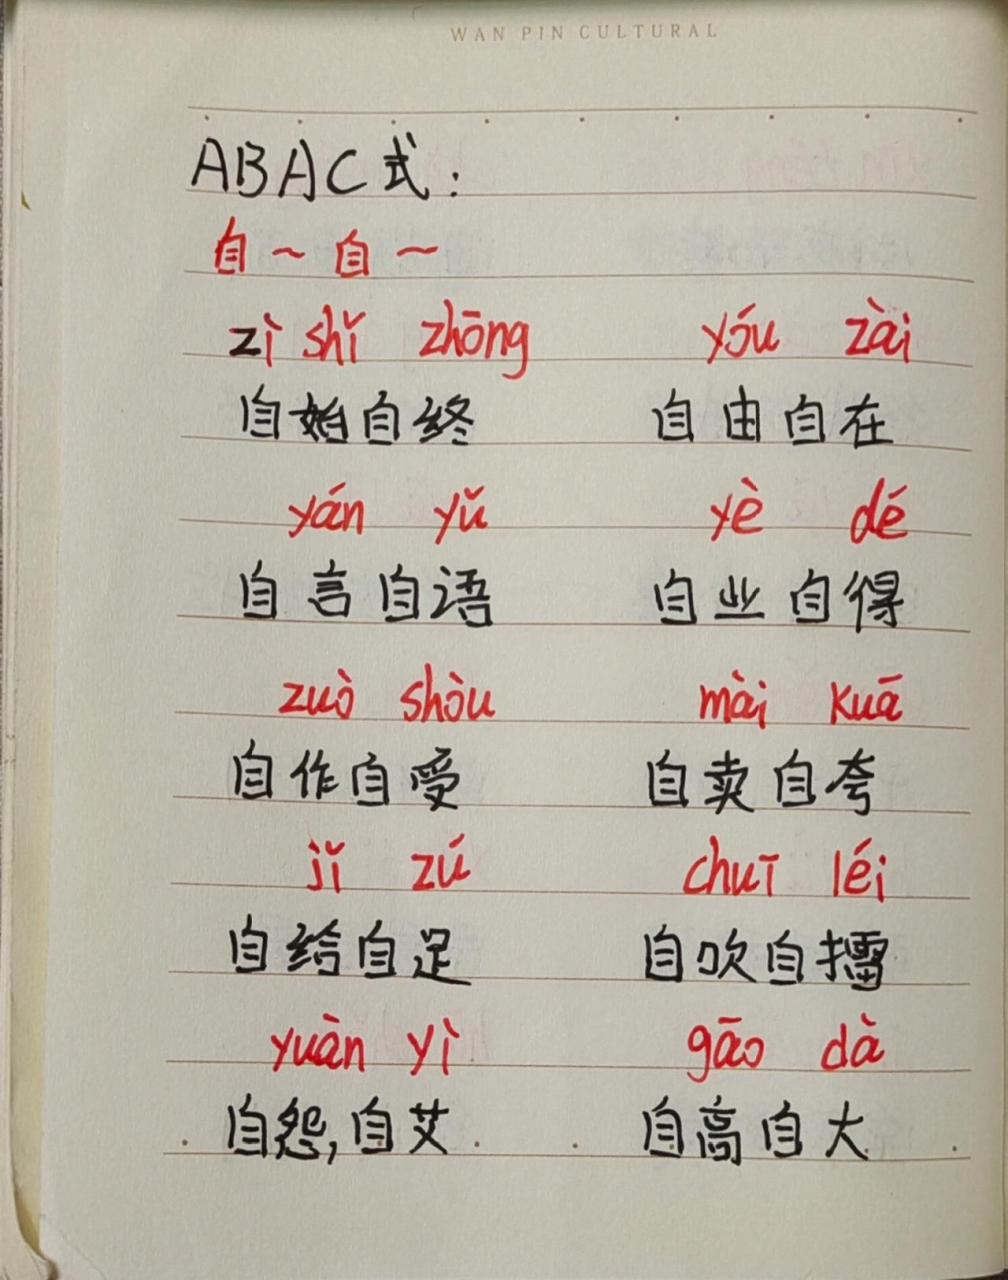 WAN PIN CULTURAL
ABAC式：
自～自～
zì shǐ zhōng yóu zài
自始自终 自由自在
yán yǔ yè dé
自言自语 自业自得
zuò shòu mài kuā
自作自受 自卖自夸
jǐ zú chuī léi
自给自足 自吹自擂
yuàn yì gāo dà
自怨,自艾 自高自大